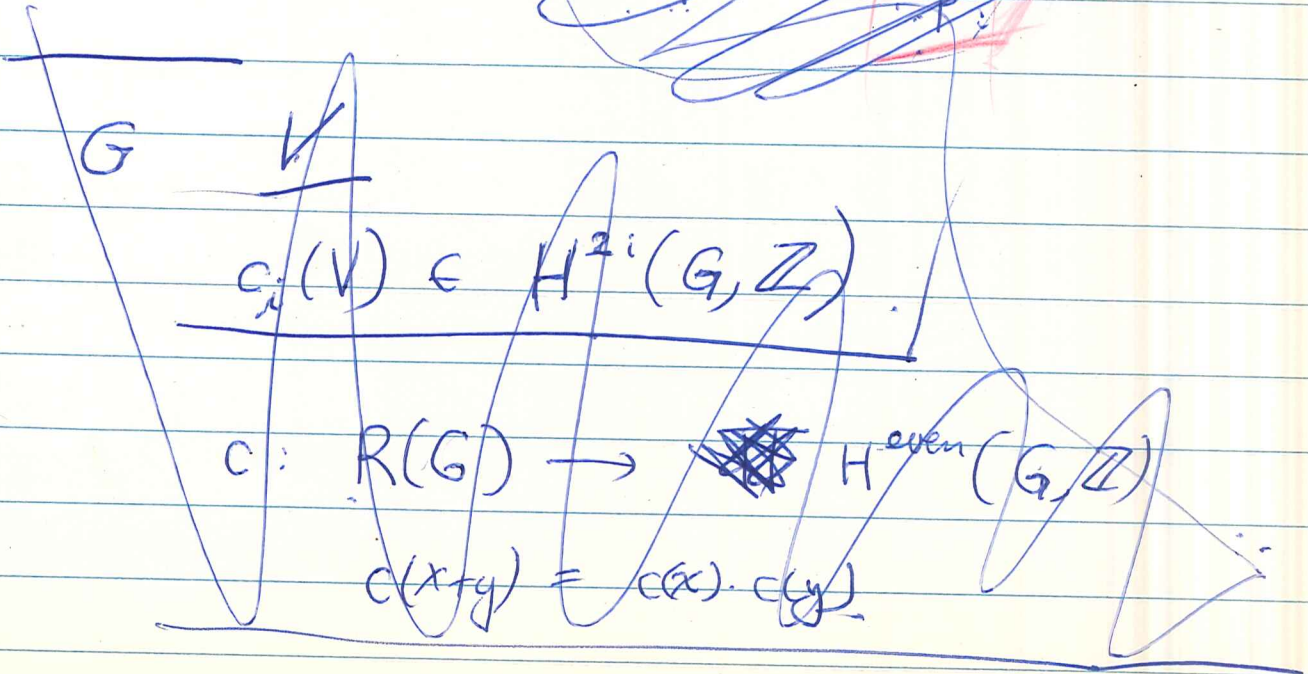 G V
c_i(V) ∈ H^{2i}(G, ℤ).
c : R(G) → H^{even}(G, ℤ)
c(x+y) = c(x). c(y).